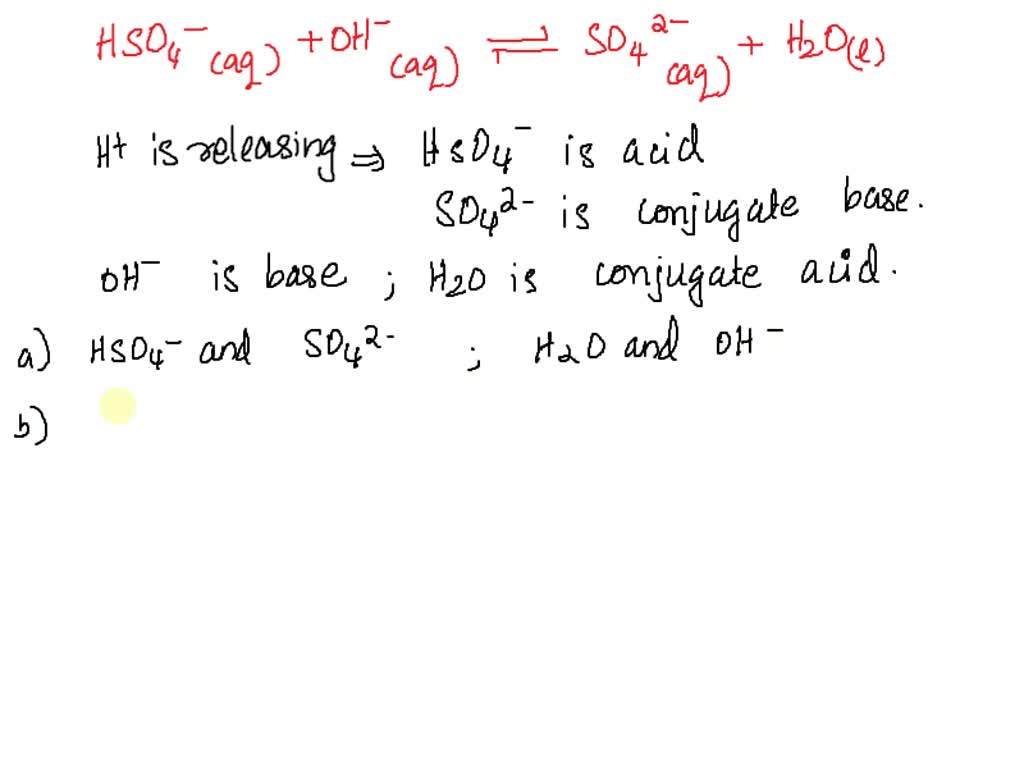 HSO₄⁻(aq) + OH⁻(aq) ⇌ SO₄²⁻(aq) + H₂O(l)
H⁺ is releasing ⇒ HSO₄⁻ is acid
SO₄²⁻ is conjugate base.
OH⁻ is base ; H₂O is conjugate acid.
a) HSO₄⁻ and SO₄²⁻ ; H₂O and OH⁻
b)